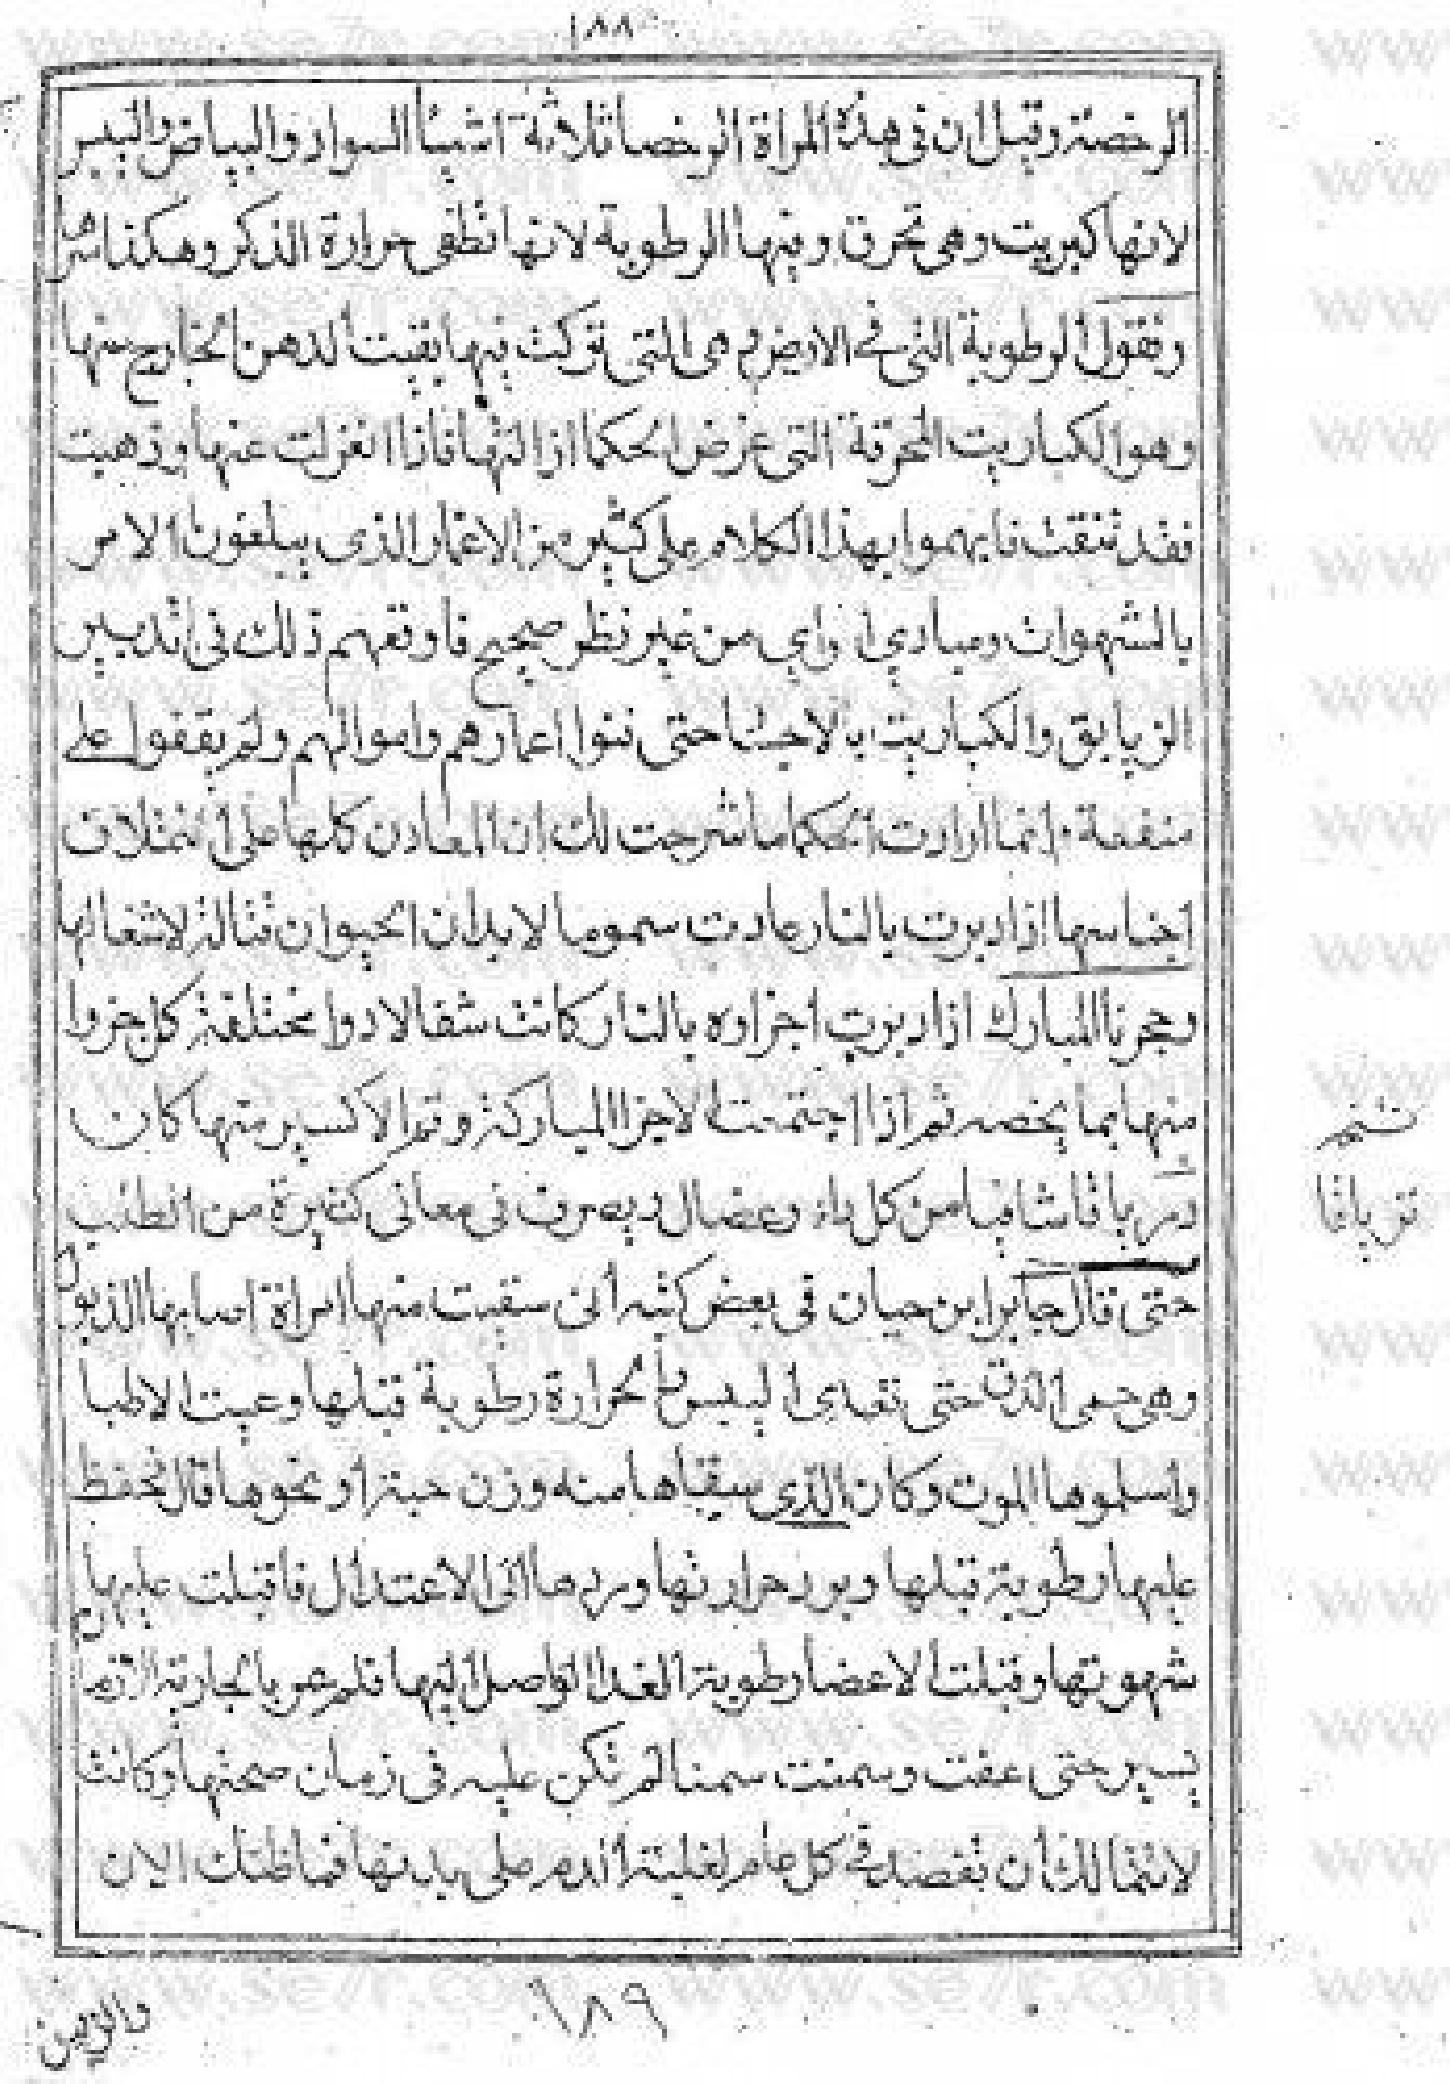 ١٨٨
الرخصة وقيل ان في هذه المراة الرخصا ثلاثة اشيا السواد والبياض واليبس
لانها كبريت وهي تحرق وفيها الرطوبة لانها تطفى حرارة الذكر وهكذا
ونقول الرطوبة التي في الارض هي التي تركت فيها بقيت الدهن الخارج منها
وهو الكباريت المحرقة التي غرض الحكما ازالتها فاذا انغزلت عنها وذهبت
فقد نقت فايهموا بهذا الكلام على كثير من الاغمار الذي يبلغون الامر
بالشهوات ومبادي الراي من غير نظر صحيح فاوتفهم ذلك في تدبير
الزيابق والكباريت بالاجسا حتى فنوا اعمارهم واموالهم ولم يقفوا على
منفعة وانما ارادت الحكما ما شرحت لك ان المعادن كلها على اختلاف
اجناسها اذا دبرت بالنار عادت سموما لابدان الحيوان فتنالذ لاشغالها
وحجرنا المبارك اذا دبرت اجزاوه بالنار كانت شفا لادوا مختلفة كل جزوا
منها بما يخصه ثم اذا اجتمعت الاجزا المباركة وتم الاكسير منها كان
درياقا شافيا من كل داء وعضال ويصرف في معاني كثيرة من الطب
حتى قال جابر ابن حيان في بعض كتبه انى سقيت منها امراة اصابها الذبول
وهي حمى الدق حتى تعدى اليبس والحرارة رطوبة قبلها وعيت الاطبا
واسلموها الموت وكان الذي سقاها منه وزن حبة او نحوها قال فحفظ
عليها رطوبة قبلها وبرد حرارتها وردها الى الاعتدال فاقبلت عليها
شهوتها وقبلت الاعضا رطوبة الغدا الواصل اليها فلم عو بالجارية الا زما
يسير حتى عفت وسمنت سمنا لم تكن عليه في زمان صحتها وكانت
لا تتمالك ان تفصد في كل عام لغلبة الدم على بدنها فما ظنك الان
ترياقا
١٨٩
والزمن